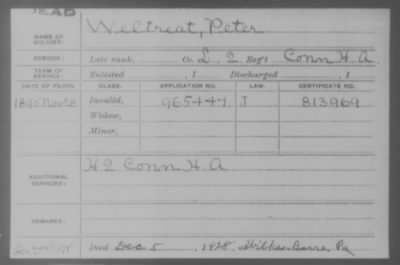 DEAD
NAME OF SOLDIER: Weltreat, Peter
SERVICE: Late rank, Co. L, 2 Reg't Conn H. A.
TERM OF SERVICE: Enlisted , 1 Discharged , 1
DATE OF FILING. CLASS. APPLICATION NO. LAW. CERTIFICATE NO.
1890 Nov 28 Invalid, 965447 J 813969
Widow,
Minor,
ADDITIONAL SERVICES: H 2 Conn H A
REMARKS:
Died Dec 5, 1928, Wilkes-Barre Pa